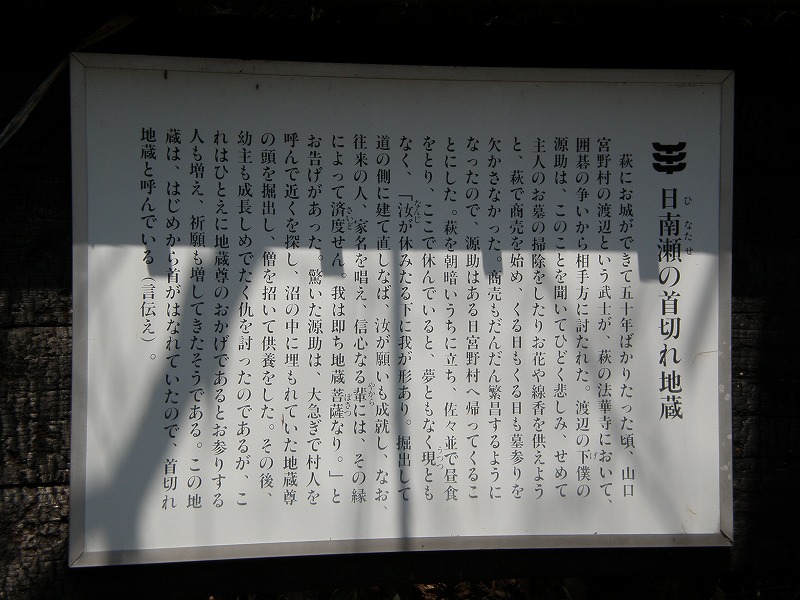 日南瀬の首切れ地蔵
ひなたせ
萩にお城ができて五十年ばかりたった頃、山口
宮野村の渡辺という武士が、萩の法華寺において、
囲碁の争いから相手方に討たれた。渡辺の下僕の
げ
源助は、このことを聞いてひどく悲しみ、せめて
主人のお墓の掃除をしたりお花や線香を供えよう
と、萩で商売を始め、くる日もくる日も墓参りを
欠かさなかった。商売もだんだん繁昌するように
なったので、源助はある日宮野村へ帰ってくるこ
とにした。萩を朝暗いうちに立ち、佐々並で昼食
をとり、ここで休んでいると、夢ともなく現とも
うつつ
なく、「汝が休みたる下に我が形あり。掘出して
なんじ
道の側に建て直しなば、汝が願いも成就し、なお、
往来の人、家名を唱え、信心なる輩には、その縁
やから
によって済度せん。我は即ち地蔵菩薩なり。」と
さいど
ぼさつ
お告げがあった。驚いた源助は、大急ぎで村人を
呼んで近くを探し、沼の中に埋もれていた地蔵尊
の頭を掘出し、僧を招いて供養をした。その後、
幼主も成長しめでたく仇を討ったのであるが、こ
れはひとえに地蔵尊のおかげであるとお参りする
人も増え、祈願も増してきたそうである。この地
蔵は、はじめから首がはなれていたので、首切れ
地蔵と呼んでいる（言伝え）。